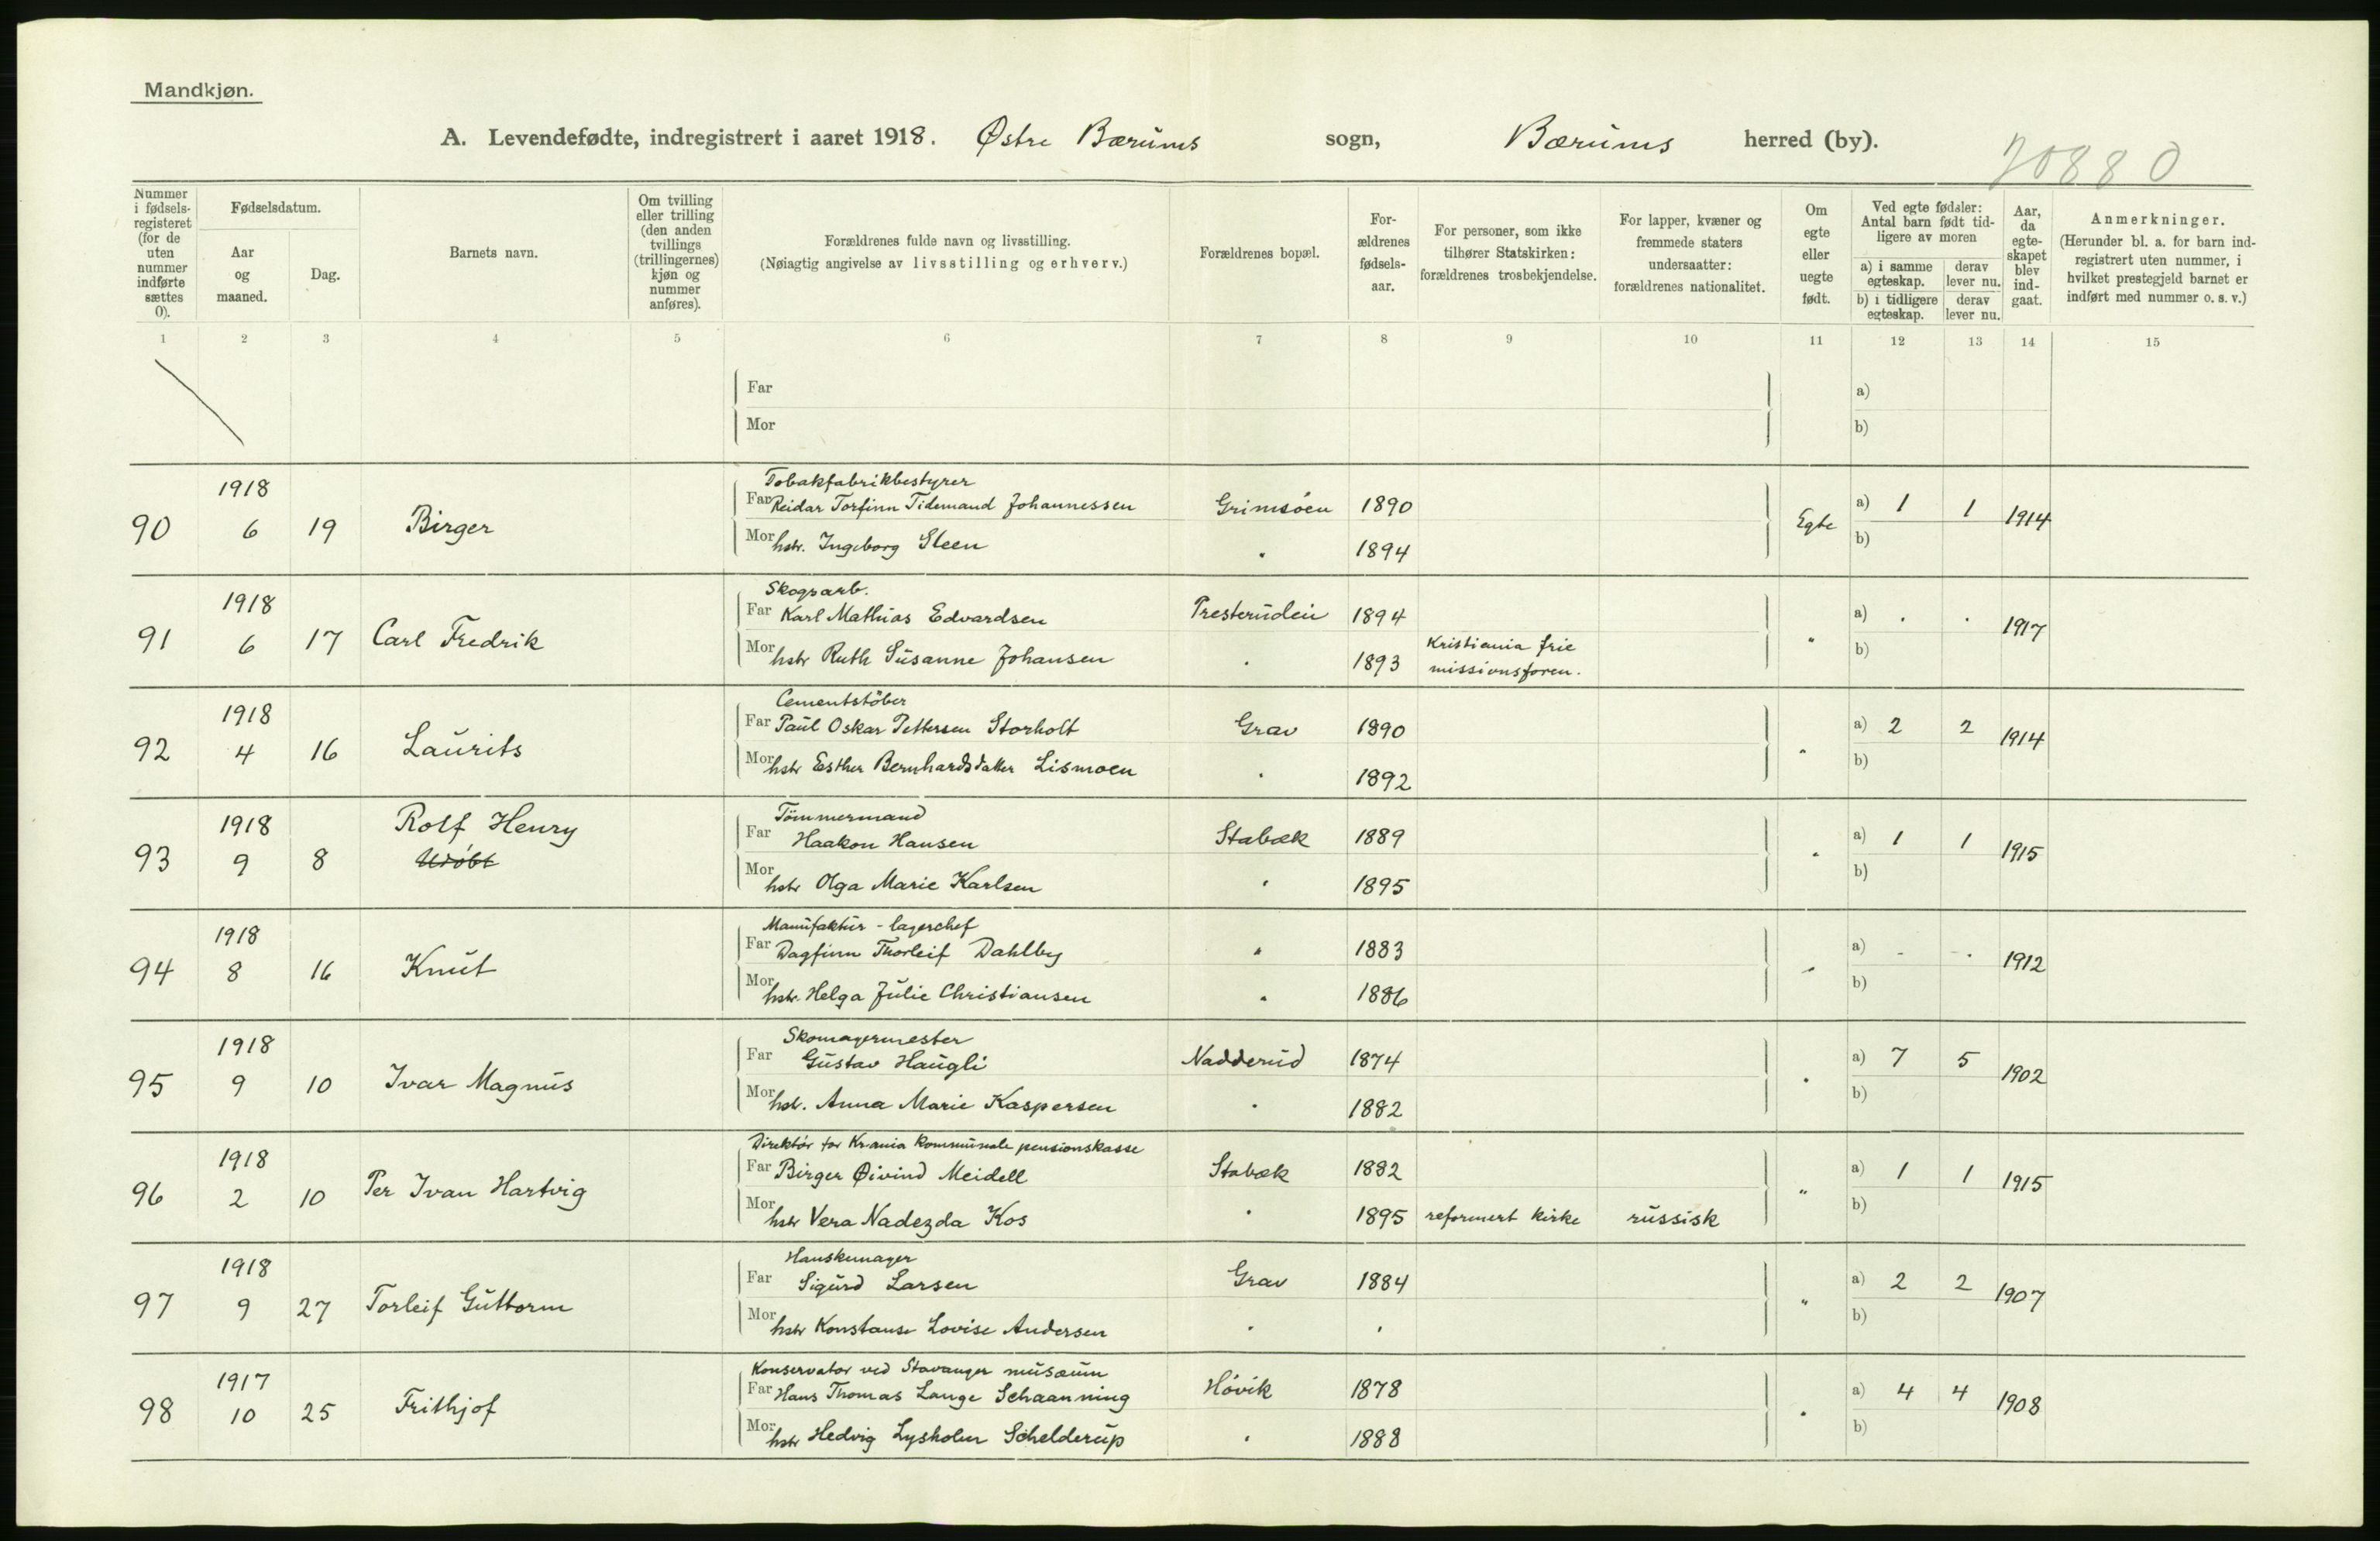 Mandkjøn.
A. Levendefødte, indregistrert i aaret 1918. Østre Bærums sogn, Bærums herred (by).
20880
Nummer i fødsels-registeret (for de uten nummer indførte sættes 0).
Fødselsdatum.
Aar og maaned.
Dag.
Barnets navn.
Om tvilling eller trilling (den anden tvillings (trillingernes) kjøn og nummer anføres).
Forældrenes fulde navn og livsstilling.
(Nøiagtig angivelse av livsstilling og erhverv.)
Forældrenes bopæl.
For-ældrenes fødsels-aar.
For personer, som ikke tilhører Statskirken: forældrenes trosbekjendelse.
For lapper, kvæner og fremmede staters undersaatter: forældrenes nationalitet.
Om egte eller uegte født.
Ved egte fødsler: Antal barn født tid-ligere av moren
a) i samme egteskap. derav lever nu.
b) i tidligere egteskap. derav lever nu.
Aar, da egte-skapet blev ind-gaat.
Anmerkninger.
(Herunder bl. a. for barn ind-registrert uten nummer, i hvilket prestegjeld barnet er indført med nummer o. s. v.)
1 2 3 4 5 6 7 8 9 10 11 12 13 14 15
Far a)
Mor b)
1918 Tobakfabrikbestyrer
90 6 19 Birger Far Reidar Torfinn Tidemand Johannessen Grimsöen 1890 Egte a) 1 1 1914
Mor hstr. Ingeborg Steen " 1894 b)
1918 Skogsarb.
91 6 17 Carl Fredrik Far Karl Mathias Edvardsen Presteruden 1894 " a) . . 1917
Mor hstr Ruth Susanne Johansen " 1893 Kristiania frie missionsforen. b)
1918 Cementstöber
92 4 16 Laurits Far Paul Oskar Pettersen Storholt Grav 1890 " a) 2 2 1914
Mor hstr Esther Bernhardsdatter Lismoen " 1892 b)
1918 Rolf Henry Tömmermand
93 9 8 Udöbt Far Haakon Hansen Stabæk 1889 " a) 1 1 1915
Mor hstr Olga Marie Karlsen " 1895 b)
1918 Manufaktur - lagerchef
94 8 16 Knut Far Dagfinn Thorleif Dahlby " 1883 " a) - . 1912
Mor hstr. Helga Julie Christiansen " 1886 b)
1918 Skomagermester
95 9 10 Ivar Magnus Far Gustav Haugli Nadderud 1874 " a) 7 5 1902
Mor hstr. Anna Marie Kaspersen " 1882 b)
1918 Direktör for Kr.ania kommunale pensionskasse
96 2 10 Per Ivan Hartvig Far Birger Øivind Meidell Stabæk 1882 " a) 1 1 1915
Mor hstr Vera Nadezda Kos " 1895 reformert kirke russisk b)
1918 Hanskemager
97 9 27 Torleif Guttorm Far Sigurd Larsen Grav 1884 " a) 2 2 1907
Mor hstr Konstanse Lovise Andersen " " b)
1917 Konservator ved Stavanger musæum
98 10 25 Frithjof Far Hans Thomas Lange Schaanning Hövik 1878 " a) 4 4 1908
Mor hstr Hedvig Lysholm Schelderup " 1888 b)